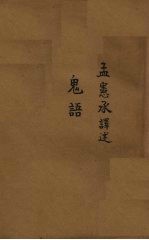 孟憲承譯述
鬼語